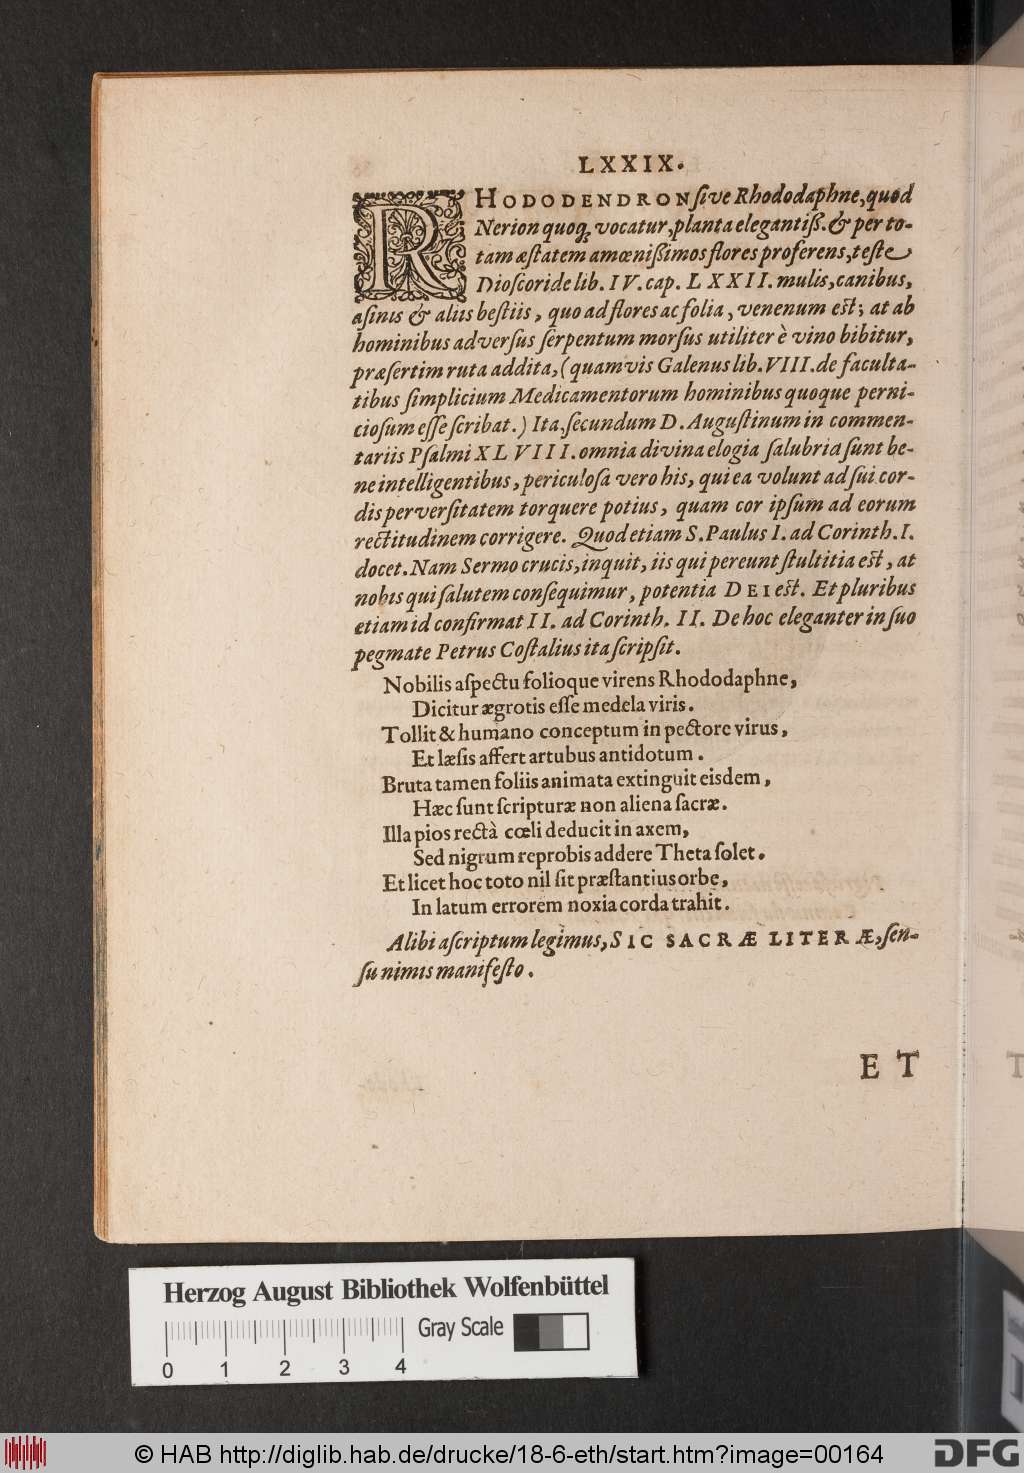 LXXIX.
RHODODENDRON ſive Rhododaphne, quod
Nerion quoq; vocatur, planta elegantiß. & per to-
tam æſtatem amœnißimos flores proferens, teſte
Dioſcoride lib. IV. cap. LXXII. mulis, canibus,
aſinis & aliis beſtiis, quo ad flores ac folia, venenum eſt; at ab
hominibus adverſus ſerpentum morſus utiliter è vino bibitur,
præſertim ruta addita, (quamvis Galenus lib. VIII. de faculta-
tibus ſimplicium Medicamentorum hominibus quoque perni-
cioſum eſſe ſcribat.) Ita, ſecundum D. Auguſtinum in commen-
tariis Pſalmi XLVIII. omnia divina elogia ſalubria ſunt be-
ne intelligentibus, periculoſa vero his, qui ea volunt ad ſui cor-
dis perverſitatem torquere potius, quam cor ipſum ad eorum
rectitudinem corrigere. Quod etiam S. Paulus I. ad Corinth. I.
docet. Nam Sermo crucis, inquit, iis qui pereunt ſtultitia eſt, at
nobis qui ſalutem conſequimur, potentia DEI eſt. Et pluribus
etiam id confirmat II. ad Corinth. II. De hoc eleganter in ſuo
pegmate Petrus Coſtalius ita ſcripſit.
Nobilis aſpectu folioque virens Rhododaphne,
Dicitur ægrotis eſſe medela viris.
Tollit & humano conceptum in pectore virus,
Et læſis affert artubus antidotum.
Bruta tamen foliis animata extinguit eisdem,
Hæc ſunt ſcripturæ non aliena ſacræ.
Illa pios rectà cœli deducit in axem,
Sed nigrum reprobis addere Theta ſolet.
Et licet hoc toto nil ſit præſtantius orbe,
In latum errorem noxia corda trahit.
Alibi aſcriptum legimus, SIC SACRÆ LITERÆ, ſen-
ſu nimis manifeſto.
ET
Herzog August Bibliothek Wolfenbüttel
Gray Scale
0 1 2 3 4
© HAB http://diglib.hab.de/drucke/18-6-eth/start.htm?image=00164
DFG